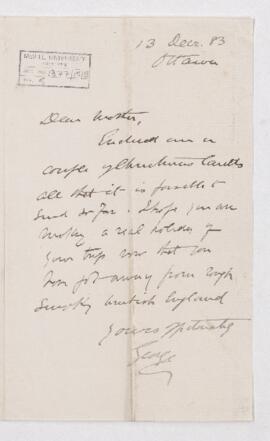 McGILL UNIVERSITY
13 Decr. 83
Ottawa
Dear Mother,
Enclosed are a
couple of Christmas Cards
all that it is possible to
send so far. I hope you are
making a real holiday of
your trip now that you
have got away from
smoky British England
Yours
George